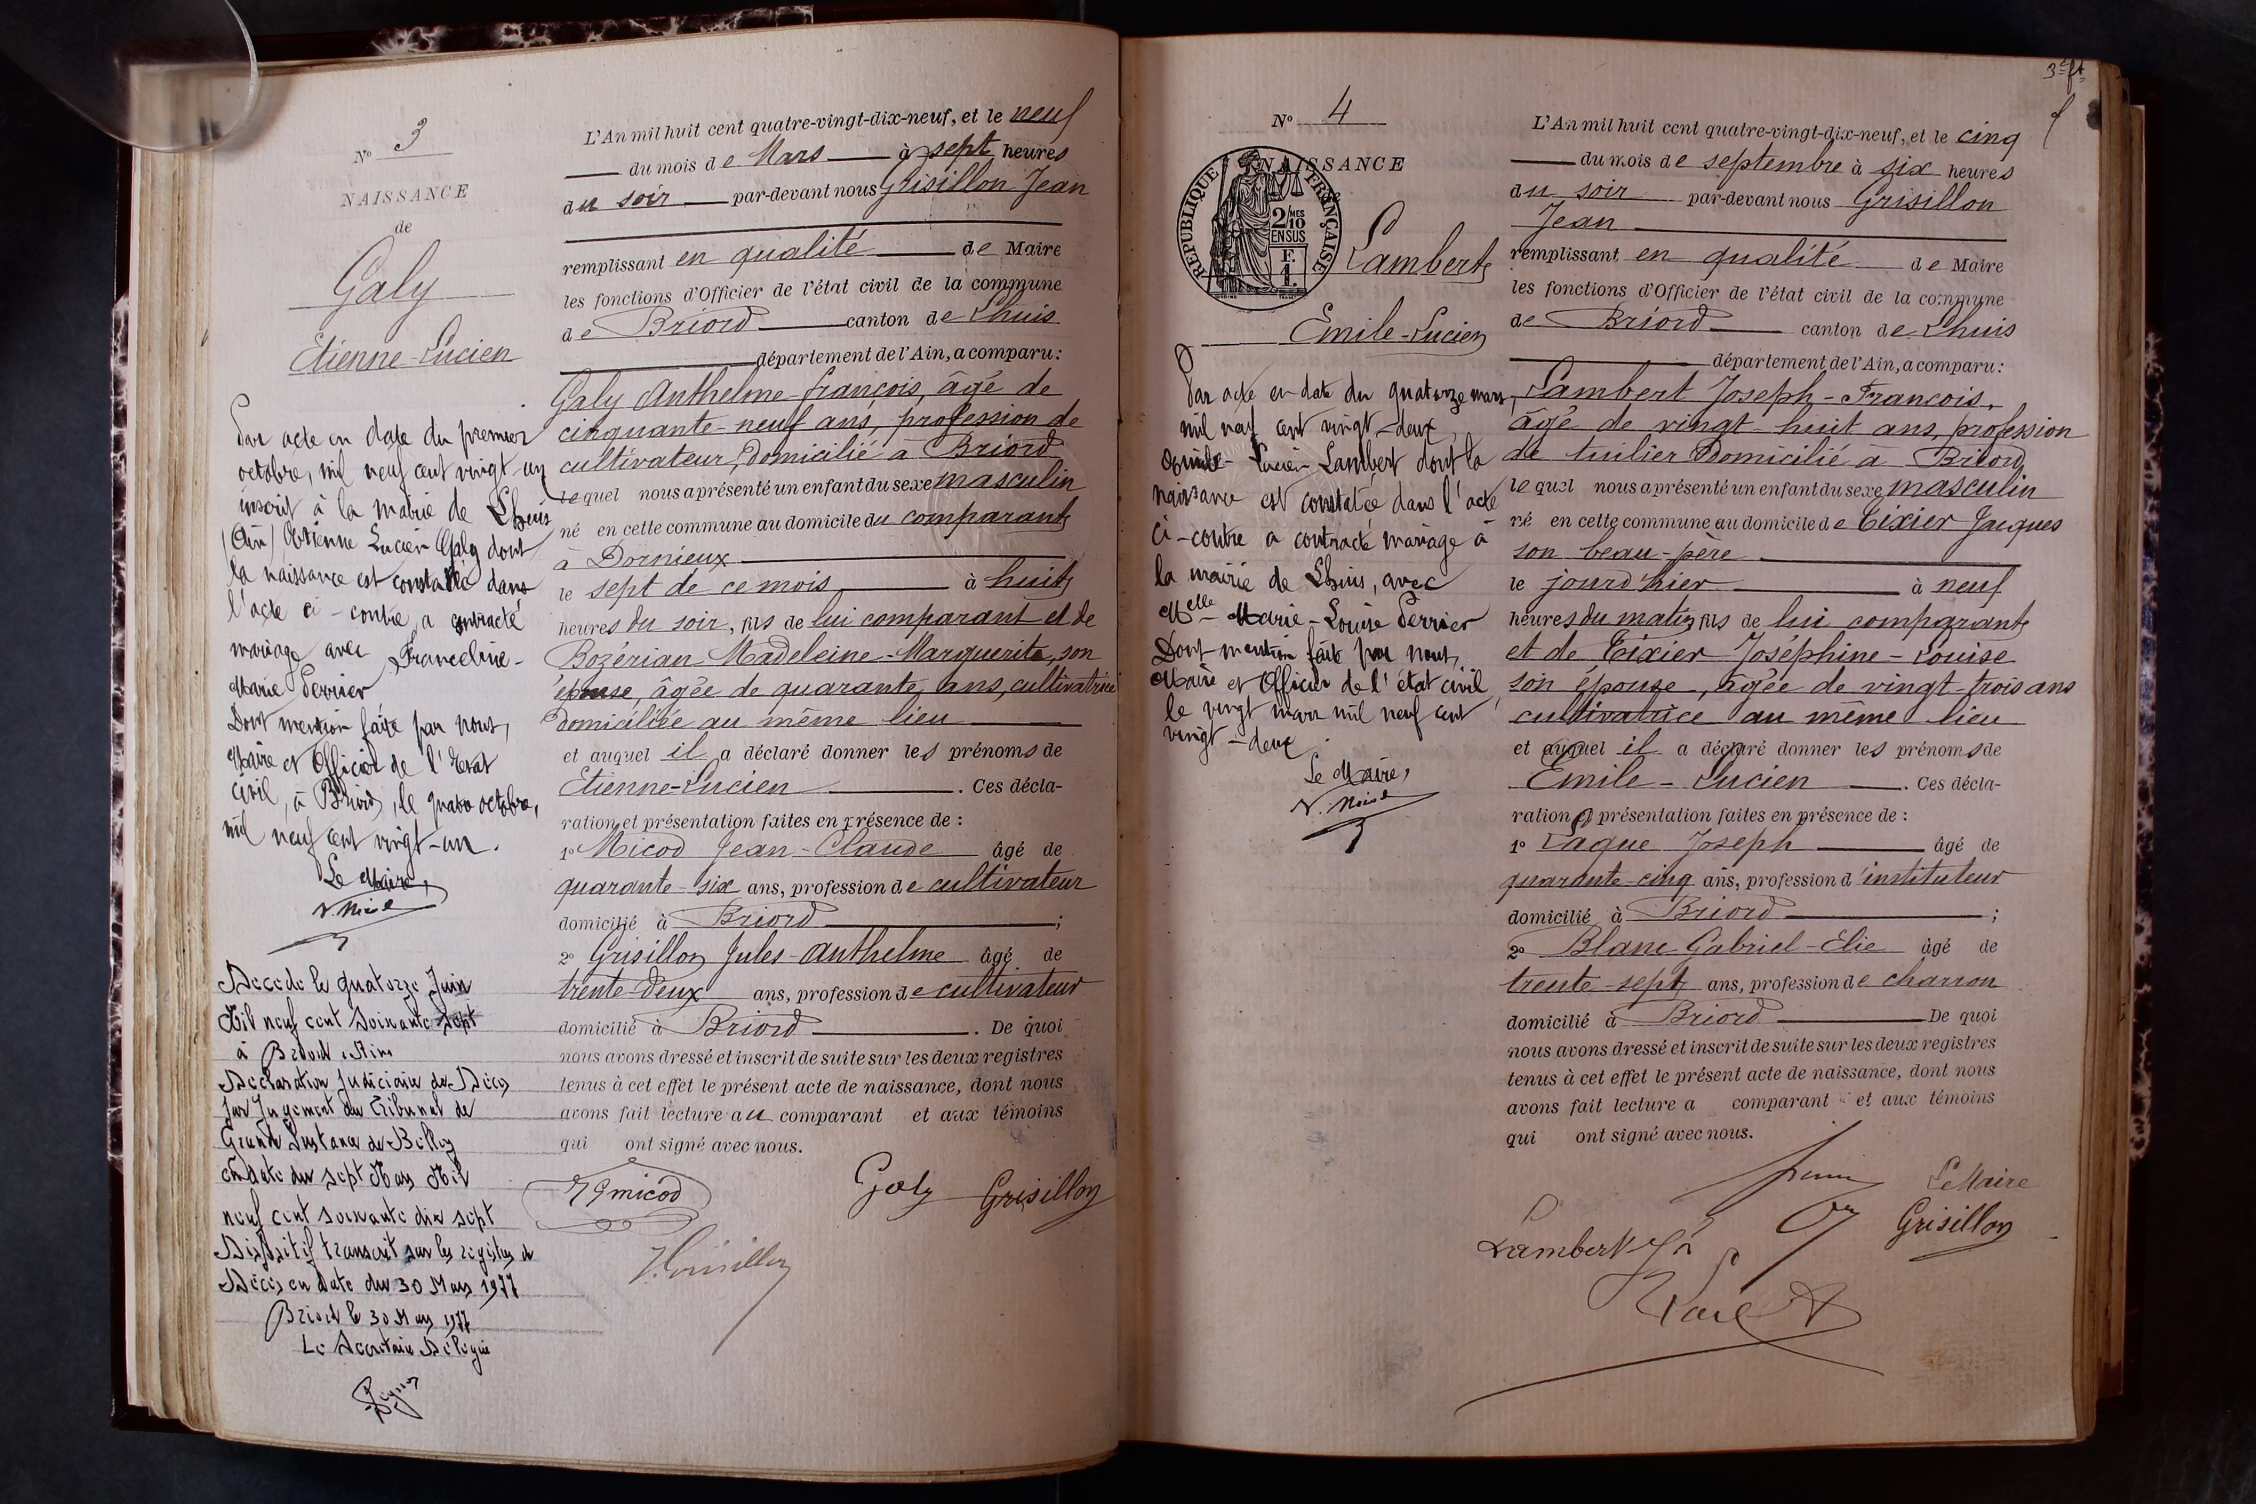 N° 3
NAISSANCE
de
Galy
Etienne-Lucien
Par acte en date du premier
octobre, mil neuf cent vingt-un
inscrit à la mairie de Lhuis
(Ain) Etienne Lucien Galy dont
la naissance est constatée dans
l'acte ci-contre, a contracté
mariage avec Franceline-
Marie Perrier
Dont mention faite par nous,
Maire et Officier de l'Etat
civil, à Briord, le quatre octobre,
mil neuf cent vingt-un.
Le Maire,
Décédé le quatorze Juin
Mil neuf cent Soixante Sept
à Briord
Déclaration Judiciaire de Décès
par Jugement du Tribunal de
Grande Instance de Belley
en date du sept Mars Mil
neuf cent soixante dix sept
Dispositif transcrit sur les registres de
Décès en date du 30 Mars 1977
Briord le 30 Mars 1977
Le Secrétaire Délégué
L'An mil huit cent quatre-vingt-dix-neuf, et le neuf
du mois de Mars à sept heures
du soir par-devant nous Grisillon Jean
remplissant en qualité de Maire
les fonctions d'Officier de l'état civil de la commune
de Briord canton de Lhuis
département de l'Ain, a comparu:
Galy Anthelme-françois, âgé de
cinquante-neuf ans, profession de
cultivateur, domicilié à Briord
lequel nous a présenté un enfant du sexe masculin
né en cette commune au domicile du comparant
à Dornieux
le sept de ce mois à huit
heures du soir, fils de lui comparant et de
Bozérian Madeleine-Marguerite, son
épouse, âgée de quarante ans, cultivatrice
domiciliée au même lieu
et auquel il a déclaré donner les prénoms de
Etienne-Lucien. Ces décla-
ration et présentation faites en présence de :
1° Micod Jean-Claude âgé de
quarante-six ans, profession de cultivateur
domicilié à Briord ;
2° Grisillon Jules-Anthelme âgé de
trente-deux ans, profession de cultivateur
domicilié à Briord. De quoi
nous avons dressé et inscrit de suite sur les deux registres
tenus à cet effet le présent acte de naissance, dont nous
avons fait lecture au comparant et aux témoins
qui ont signé avec nous.
Micod
Galy Grisillon
J. Grisillon
N° 4
NAISSANCE
REPUBLIQUE FRANÇAISE
2/10 MES
EN SUS
F.
1.
Lambert
Emile-Lucien
Par acte en date du quatorze mars,
mil neuf cent vingt-deux,
Emile-Lucien Lambert dont la
naissance est constatée dans l'acte
ci-contre a contracté mariage à
la mairie de Lhuis, avec
Melle Marie-Louise Perrier
Dont mention faite par nous,
Maire et Officier de l'état civil,
le vingt mars mil neuf cent
vingt-deux.
Le Maire,
3e ft
L'An mil huit cent quatre-vingt-dix-neuf, et le cinq
du mois de septembre à six heures
du soir par-devant nous Grisillon
Jean
remplissant en qualité de Maire
les fonctions d'Officier de l'état civil de la commune
de Briord canton de Lhuis
département de l'Ain, a comparu:
Lambert Joseph-Francois,
âgé de vingt-huit ans, profession
de tuilier Domicilié à Briord
lequel nous a présenté un enfant du sexe masculin
né en cette commune au domicile de Tixier Jacques
son beau-père
le jourd'hier à neuf
heures du matin fils de lui comparant
et de Tixier Joséphine-Louise
son épouse, âgée de vingt-trois ans
cultivatrice au même lieu
et auquel il a déclaré donner les prénoms de
Emile-Lucien. Ces décla-
ration et présentation faites en présence de :
1° Laque Joseph âgé de
quarante-cinq ans, profession d'instituteur
domicilié à Briord ;
2° Blanc Gabriel-Elie âgé de
trente-sept ans, profession de charron
domicilié à Briord De quoi
nous avons dressé et inscrit de suite sur les deux registres
tenus à cet effet le présent acte de naissance, dont nous
avons fait lecture a comparant et aux témoins
qui ont signé avec nous.
Le Maire
Lambert Grisillon